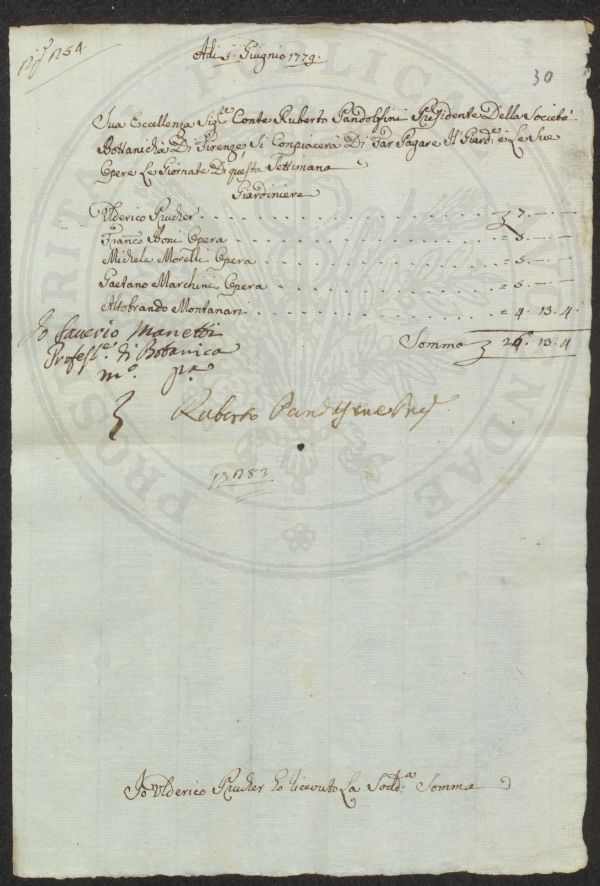 Adi 5. Giugnio 1779.
30
Sua Eccellenza Sigre. Conte Ruberto Pandolfini Presidente Della Società
Bottanicha Di Firenze, Si Conpiacerà Di Far Pagare Il Giard:e e Le Sue
Opere Le Giornate Di questa Settimana
Giardiniere
Ulderico Prucher . . . . 7. — —
Franco. Boni Opera . . . . = 5. — —
Michele Morelli Opera . . . . = 5. — —
Gaetano Marchini Opera . . . . = 5. — —
Altobrando Montanari . . . . = 4. 13. 4.
Somma 26. 13. 4
Io Saverio Manetti
Profess.e di Botanica
m.o p.a
Ruberto Pandolfini Pres.
Io Ulderico Prucher ho ricevuto La Sodd:a Somma
PROSPERITATI PUBLICAE